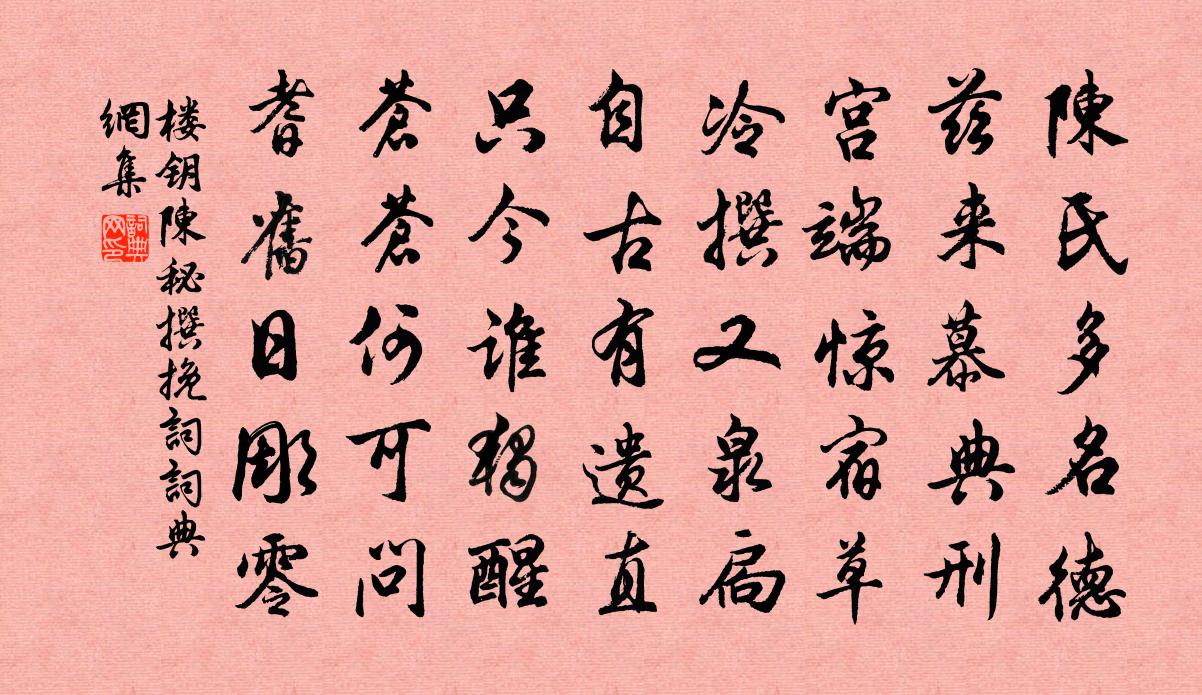 陳氏多名德
兹来慕典刑
宫端惊宿草
冷撰又泉扃
自古有遗直
只今誰獨醒
蒼蒼何可问
耆舊日彫零
楼钥陳秘撰挽詞詞典
網集
詞典网印